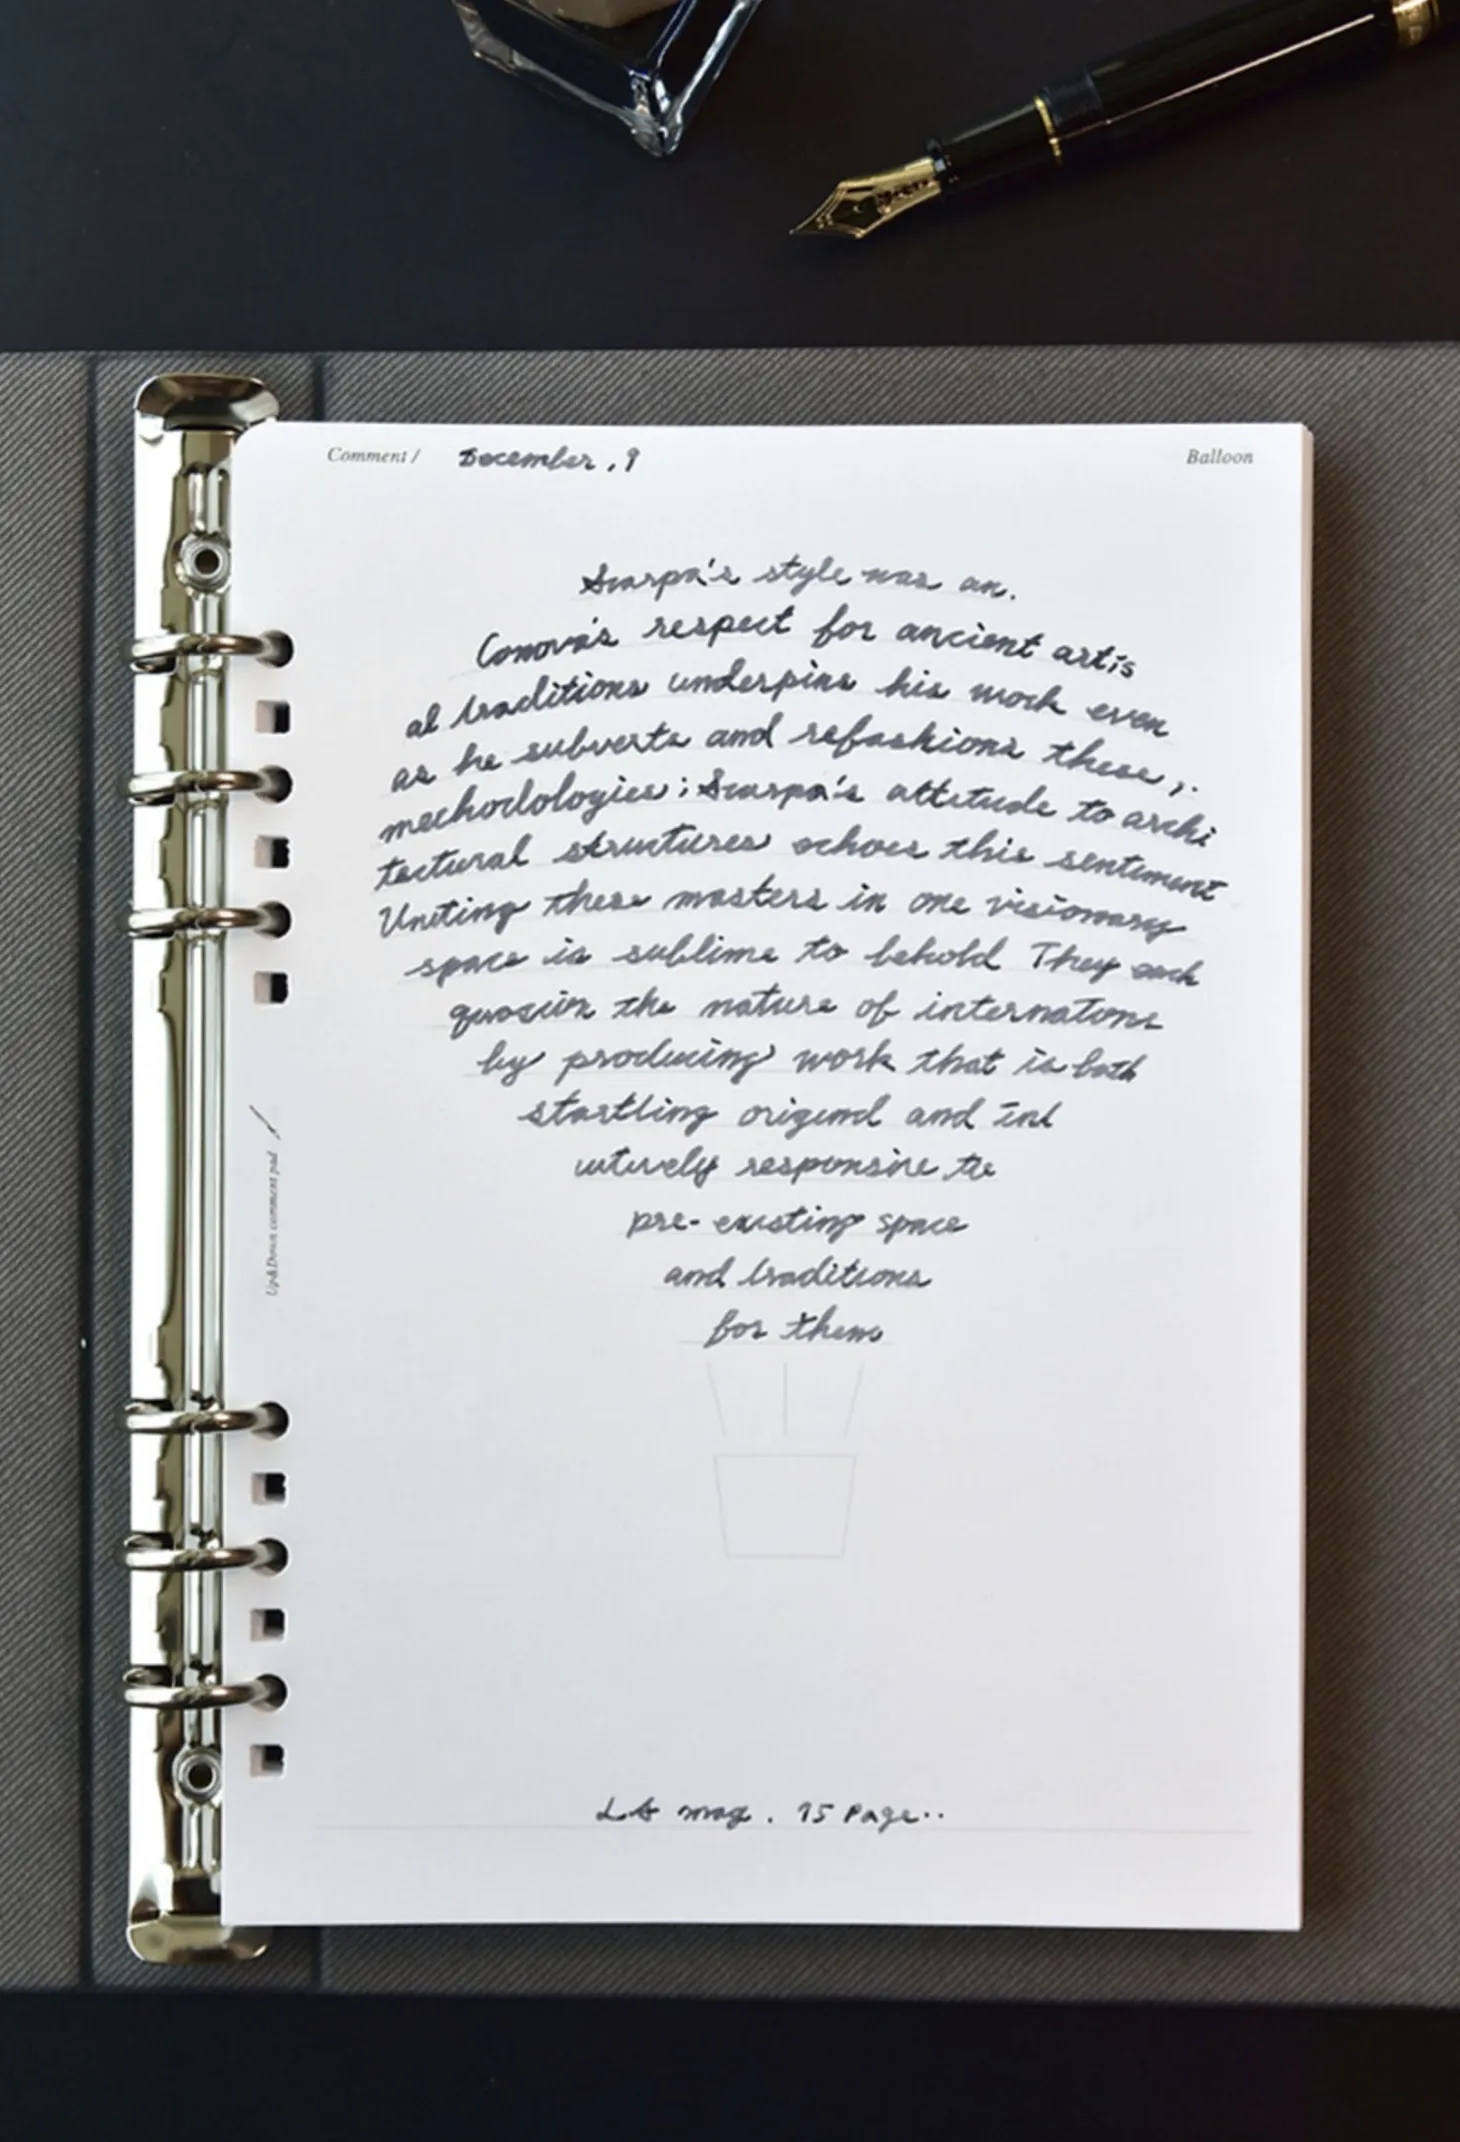 Comment / December, 9
Balloon
Scarpa's style was an.
Conova's respect for ancient artis
al traditions underpins his work even
as he subverts and refashions these,
mechodologies; Scarpa's attitude to archi
tectural structures echoes this sentiment
Uniting these masters in one visionary
space is sublime to behold They each
the nature of internatons
by producing work that is both
startling origind and int
utively responsive to
pre-existing space
and traditions
for them
Up&Down comment pad /
mag. 95 Page..